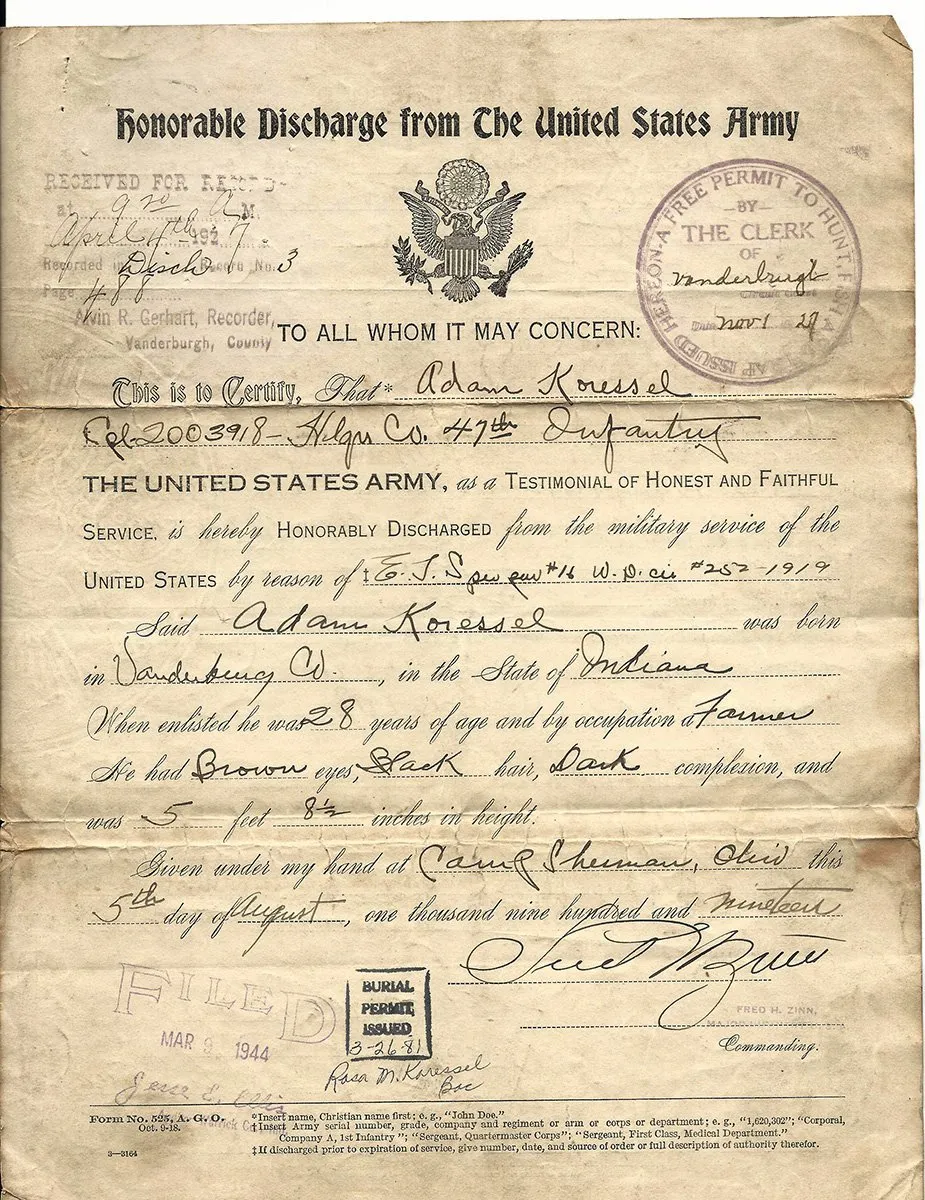 Honorable Discharge from The United States Army
RECEIVED FOR RECORD
at 9 00 A.M.
April 4th 1927.
Recorded in Disch Record No. 3
Page 488
Alvin R. Gerhart, Recorder,
Vanderburgh, County
HEREON A FREE PERMIT TO HUNT, FISH & TRAP ISSUED
—BY—
THE CLERK
OF
Vanderburgh
Nov 1 27
TO ALL WHOM IT MAY CONCERN:
This is to Certify, That* Adam Koressel
Cpl-2003918-Hdqrs Co. 47th Infantry
THE UNITED STATES ARMY, as a TESTIMONIAL OF HONEST AND FAITHFUL
SERVICE, is hereby HONORABLY DISCHARGED from the military service of the
UNITED STATES by reason of ‡ E.T.S per par #16 W.D. cir #252-1919
Said Adam Koressel was born
in Vanderburg Co., in the State of Indiana
When enlisted he was 28 years of age and by occupation a Farmer
He had Brown eyes, Black hair, Dark complexion, and
was 5 feet 8½ inches in height.
Given under my hand at Camp Sherman, Ohio this
5th day of August, one thousand nine hundred and nineteen
FRED H. ZINN,
Commanding.
FILED
MAR 1944
Jesse L. Ellis
BURIAL
PERMIT
ISSUED
3-26-81
Rosa M. Koressel
Form No. 525, A. G. O.
Oct. 9-18.
3—3164
*Insert name, Christian name first; e. g., "John Doe."
†Insert Army serial number, grade, company and regiment or arm or corps or department; e. g., "1,620,302"; "Corporal,
Company A, 1st Infantry"; "Sergeant, Quartermaster Corps"; "Sergeant, First Class, Medical Department."
‡If discharged prior to expiration of service, give number, date, and source of order or full description of authority therefor.